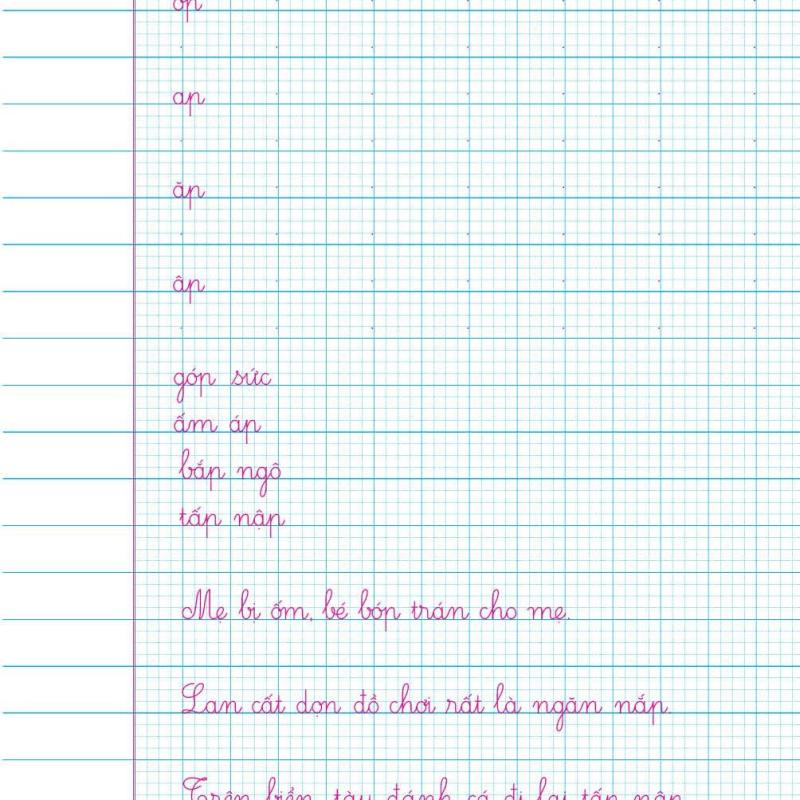 ơp
ap
ăp
âp
góp sức
ấm áp
bắp ngô
tấp nập
Mẹ bị ốm, bé bóp trán cho mẹ.
Lan cất dọn đồ chơi rất là ngăn nắp.
Trên biển, tàu đánh cá đi lại tấp nập.